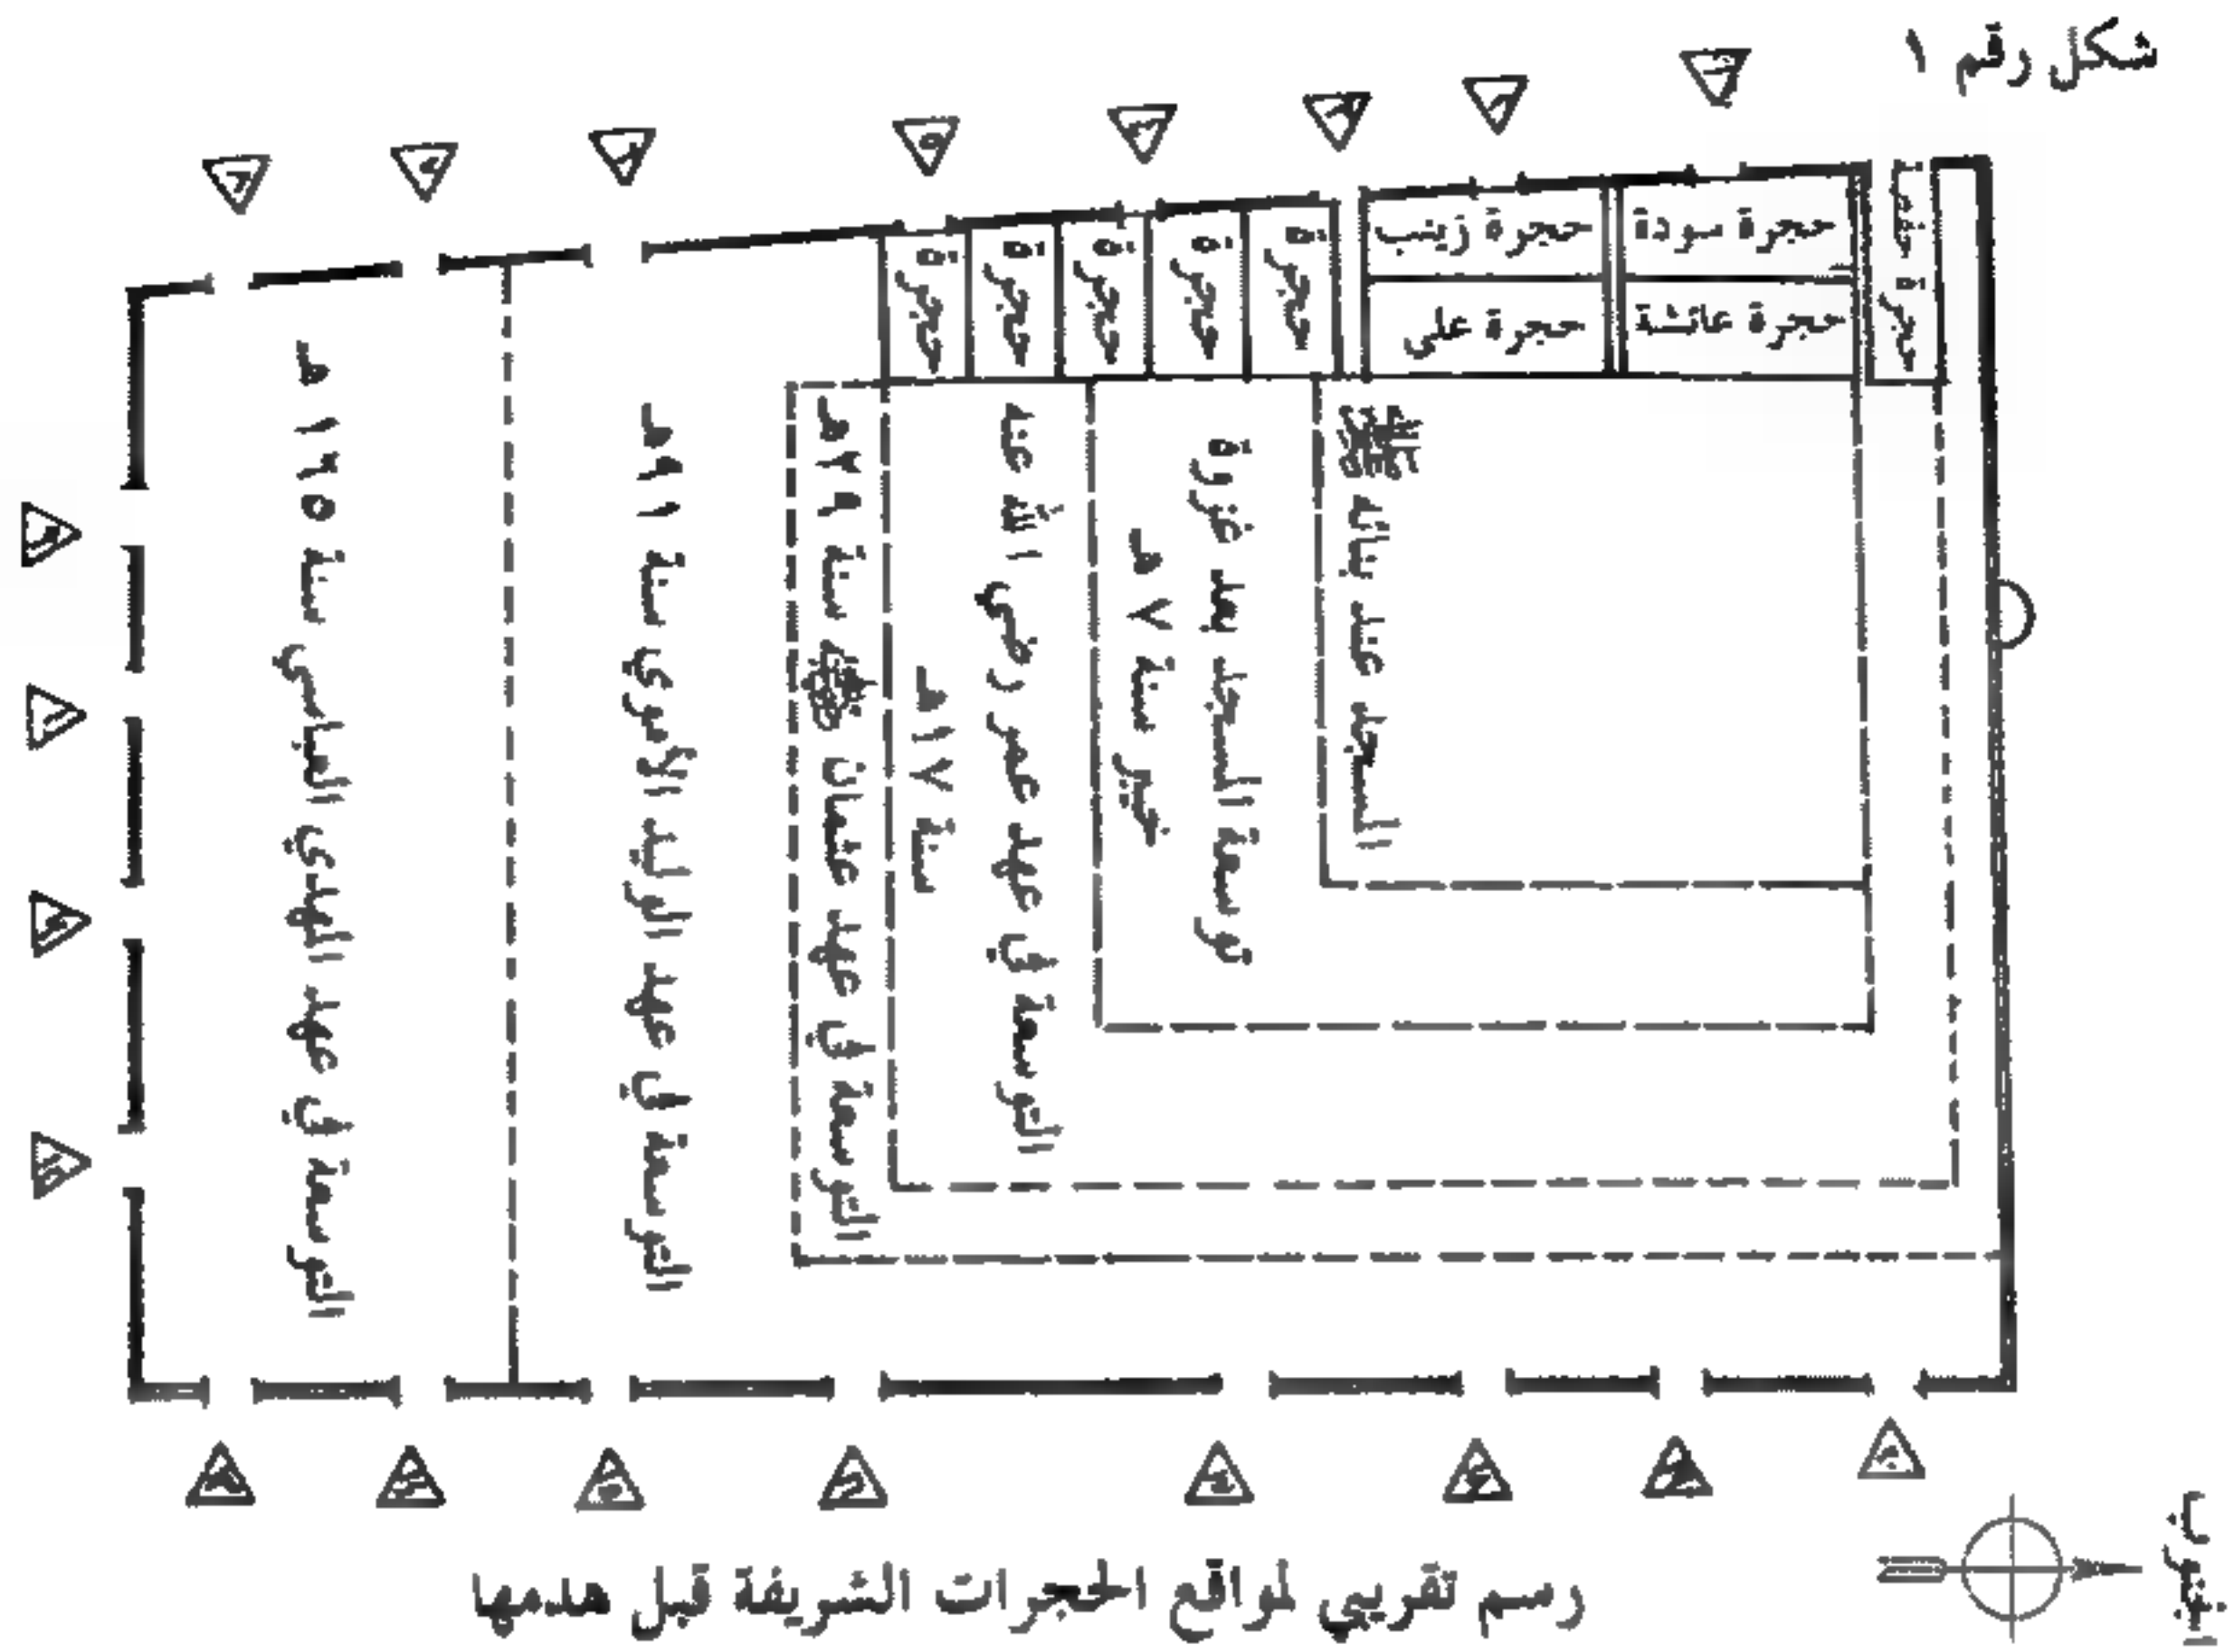 شكل رقم ١
حجرة
حجرة سودة
حجرة زينب
حجرة عائشة
حجرة علي
حجرة
حجرة
حجرة
حجرة
حجرة
المسجد عند بنائه ﷺ
توسعة المسجد بعد غزوة
خيبر سنة ٧ هـ
التوسعة في عهد عمر رضي الله عنه
سنة ١٧ هـ
التوسعة في عهد عثمان سنة ٢٩ هـ
التوسعة في عهد الوليد الأموي سنة ٩١ هـ
التوسعة في عهد المهدي العباسي سنة ١٦٥ هـ
رسم تقريبي لمواقع الحجرات الشريفة قبل هدمها